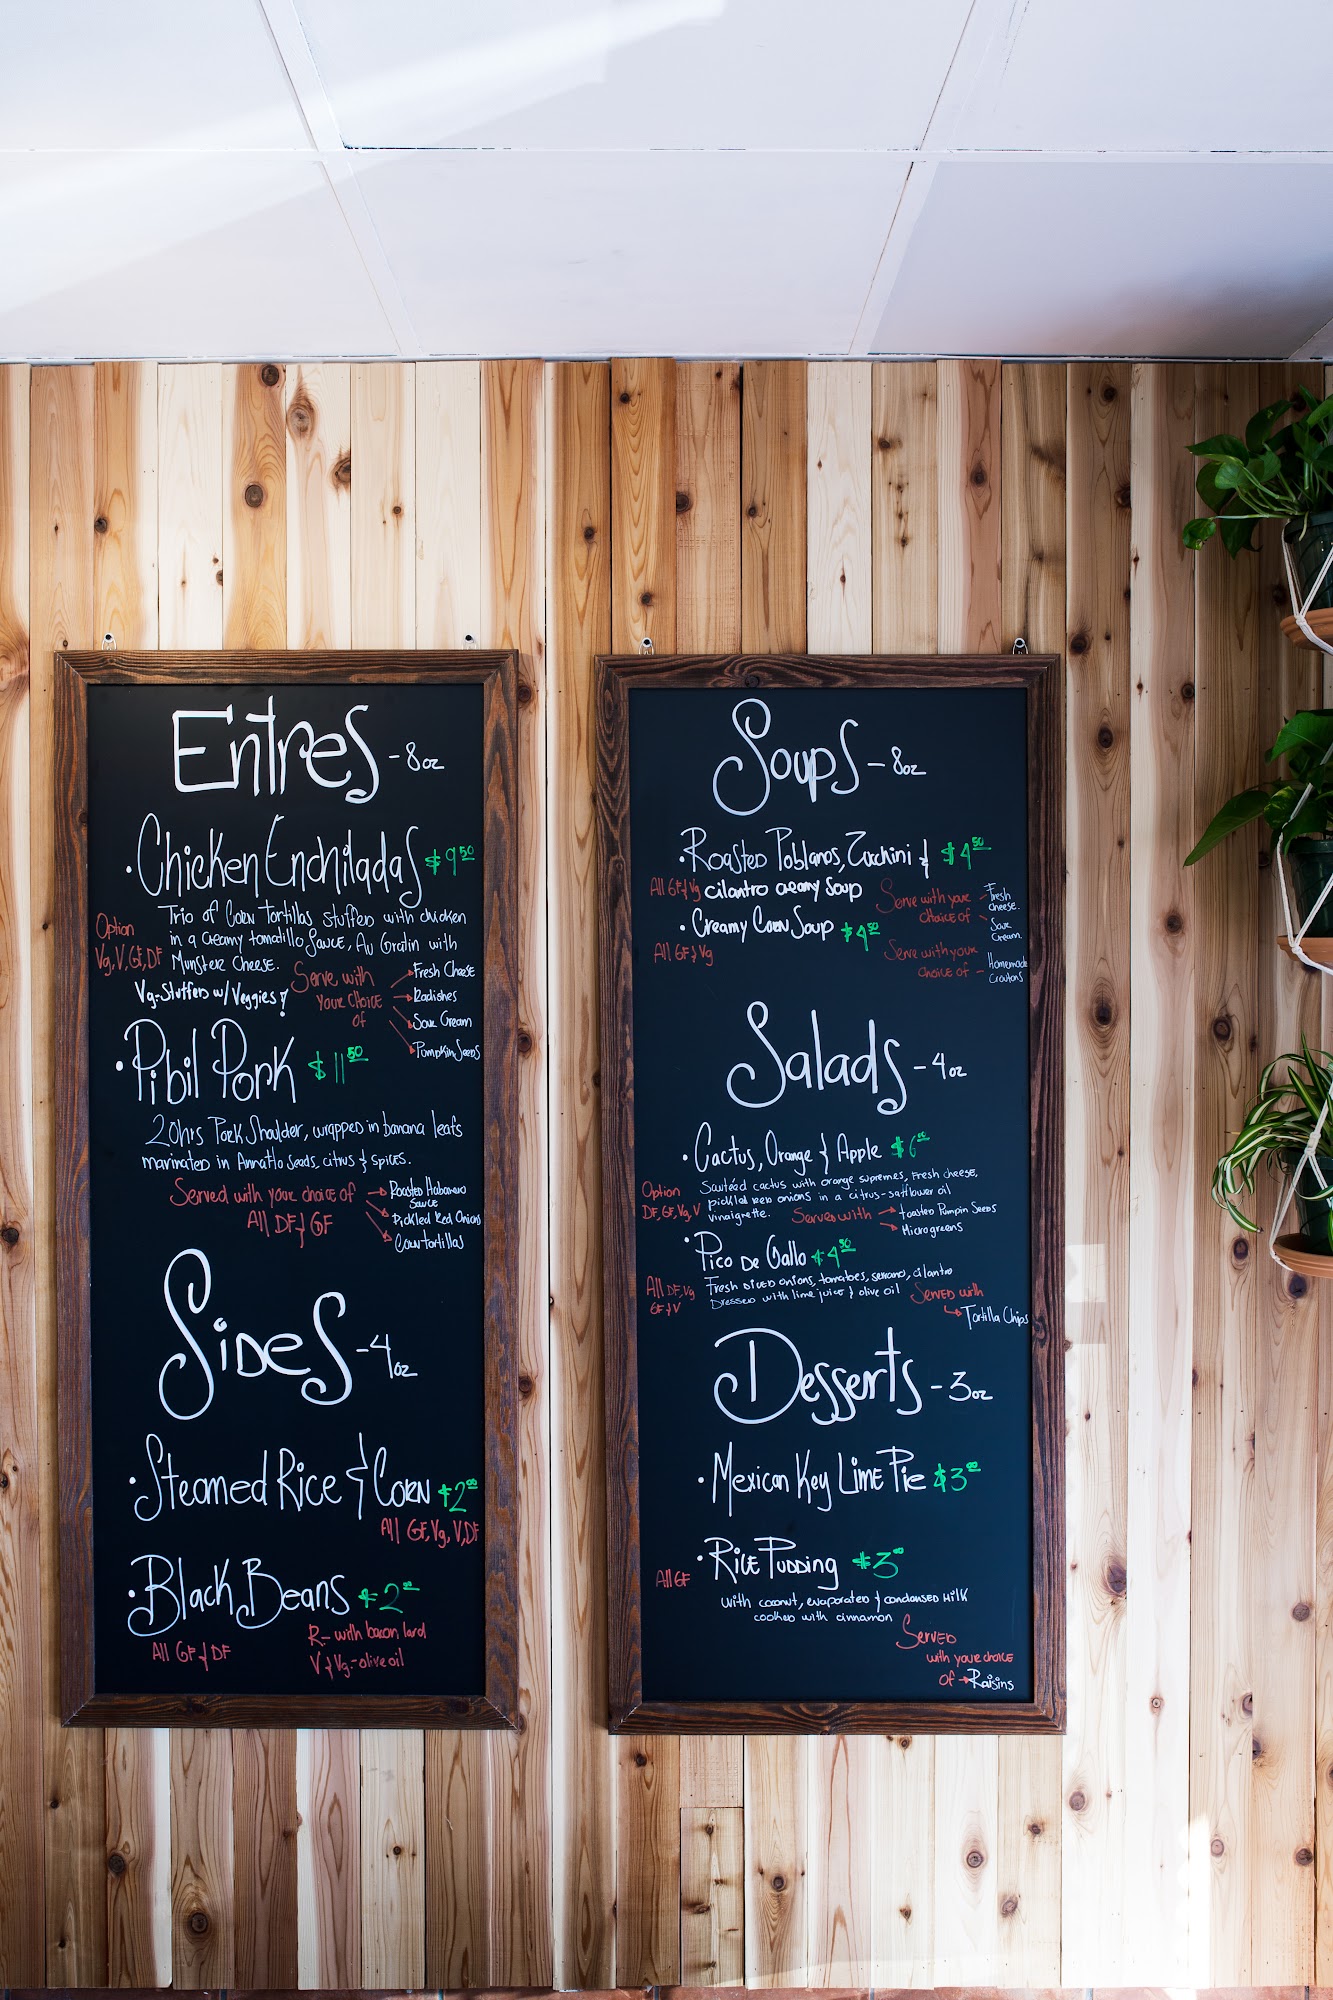 Entres - 8oz
• Chicken Enchiladas $9.50
Trio of Corn Tortillas stuffed with chicken
in a creamy tomatillo sauce, Au Gratin with
Munster Cheese.
Option
Vg, V, GF, DF
Vg-Stuffed w/ Veggies
Serve with
your choice
of
Fresh Cheese
Radishes
Sour Cream
Pumpkin Seeds
• Pibil Pork $11.50
20hrs Pork Shoulder, wrapped in banana leafs
marinated in Annatto seeds, citrus & spices.
Served with your choice of
All DF & GF
Roasted Habanero
Sauce
Pickled Red Onions
Corn tortillas
Sides - 4oz
• Steamed Rice & Corn $2.00
All GF, Vg, V, DF
• Black Beans $2.00
All GF & DF
R- with bacon, lard
V & Vg.-olive oil
Soups - 8oz
• Roasted Poblanos, Zucchini & $4.50
All GF & Vg cilantro creamy Soup
Serve with your
choice of
Fresh
cheese.
Sour
Cream
• Creamy Corn Soup $4.50
All GF & Vg
Serve with your
choice of - Homemade
Croutons
Salads - 4oz
• Cactus, Orange & Apple $6.00
Sautéed cactus with orange supremes, Fresh cheese,
pickled red onions in a citrus-safflower oil
vinaigrette.
Option
DF, GF, Vg, V
Served with
toasted Pumpin Seeds
Microgreens
• Pico De Gallo $4.50
Fresh diced onions, tomatoes, serrano, cilantro
Dressed with lime juice & olive oil
All DF, Vg
GF & V
Served with
Tortilla Chips
Desserts - 3oz
• Mexican Key Lime Pie $3.00
• Rice Pudding $3.00
All GF
with coconut, evaporated & condensed Milk
cooked with cinnamon
Served
with your choice
of Raisins